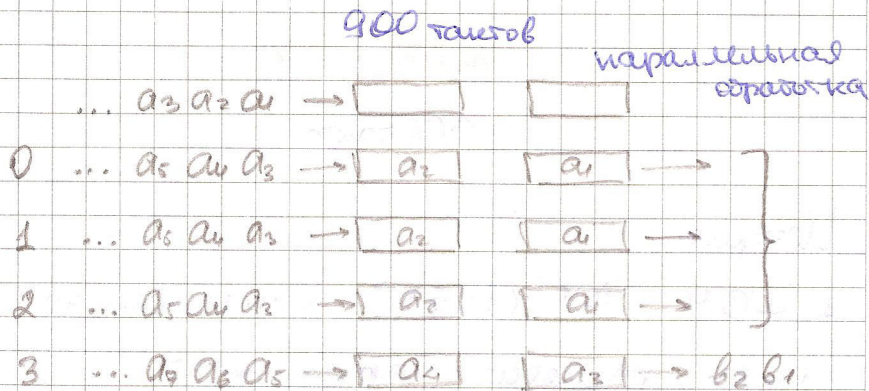 900 тактов
параллельная
обработка
... a3 a2 a1 →
0 ... a5 a4 a3 → a2 a1 →
1 ... a5 a4 a3 → a2 a1 →
2 ... a5 a4 a3 → a2 a1 →
3 ... a7 a6 a5 → a4 a3 → b2 b1